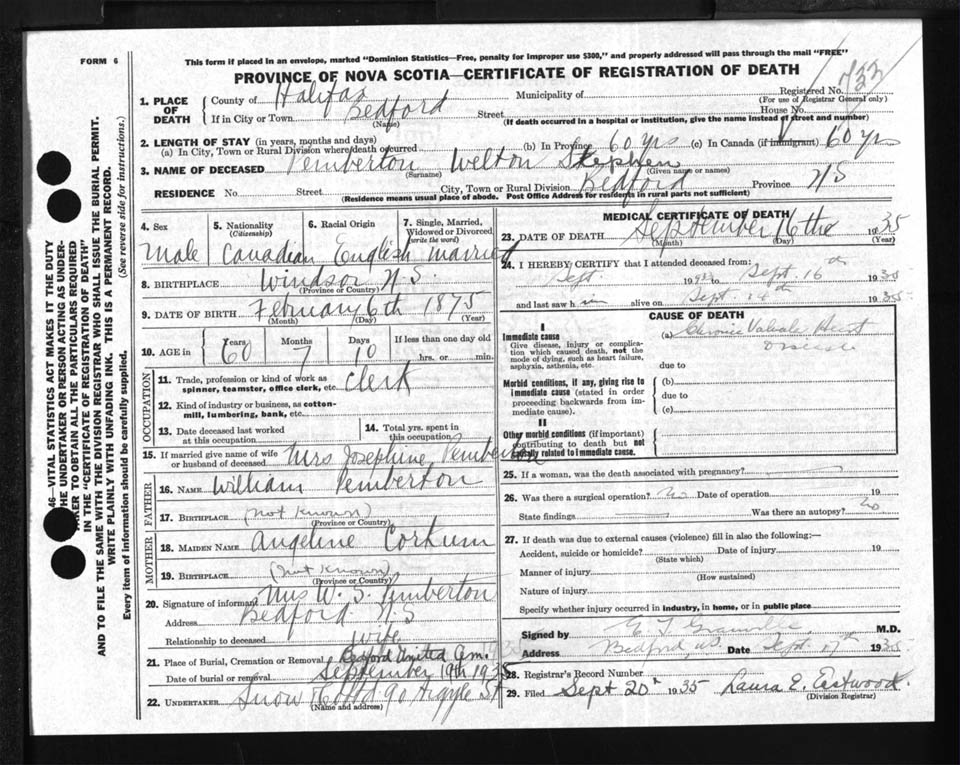 FORM 6
This form if placed in an envelope, marked "Dominion Statistics—Free, penalty for improper use $300," and properly addressed will pass through the mail "FREE"
PROVINCE OF NOVA SCOTIA—CERTIFICATE OF REGISTRATION OF DEATH
Registered No.
(For use of Registrar General only)
1. PLACE OF DEATH
County of Halifax Municipality of
If in City or Town Bedford Street House No.
(Name) (If death occurred in a hospital or institution, give the name instead of street and number)
2. LENGTH OF STAY (in years, months and days)
(a) In City, Town or Rural Division where death occurred (b) In Province 60 yrs (c) In Canada (if immigrant) 60 yrs
3. NAME OF DECEASED Pemberton Welton Stephen
(Surname) (Given name or names)
RESIDENCE No Street City, Town or Rural Division Bedford Province N S
(Residence means usual place of abode. Post Office Address for residents in rural parts not sufficient)
4. Sex 5. Nationality (Citizenship) 6. Racial Origin 7. Single, Married, Widowed or Divorced (write the word)
Male Canadian English Married
8. BIRTHPLACE Windsor N.S.
(Province or Country)
9. DATE OF BIRTH February 6th 1875
(Month) (Day) (Year)
10. AGE in Years Months Days If less than one day old
60 7 10 hrs. or min.
OCCUPATION
11. Trade, profession or kind of work as spinner, teamster, office clerk, etc. Clerk
12. Kind of industry or business, as cotton-mill, lumbering, bank, etc.
13. Date deceased last worked at this occupation
14. Total yrs. spent in this occupation
15. If married give name of wife or husband of deceased Mrs Josephine Pemberton
FATHER
16. Name William Pemberton
17. Birthplace (not known)
(Province or Country)
MOTHER
18. Maiden Name Angeline Corkum
19. Birthplace (not known)
(Province or Country)
20. Signature of informant Mrs W. S. Pemberton
Address Bedford N.S
Relationship to deceased wife
21. Place of Burial, Cremation or Removal Bedford United
Date of burial or removal September 19th 1935
22. UNDERTAKER Snow 90 Argyle St
(Name and address)
MEDICAL CERTIFICATE OF DEATH
23. DATE OF DEATH September 16 the 1935
(Month) (Day) (Year)
24. I HEREBY CERTIFY that I attended deceased from:
Sept. 19 to Sept. 16th 1935
and last saw h im alive on Sept. 1935
CAUSE OF DEATH
I
Immediate cause
Give disease, injury or complication which caused death, not the mode of dying, such as heart failure, asphyxia, asthenia, etc.
(a) Chronic Heart Disease
due to
Morbid conditions, if any, giving rise to immediate cause (stated in order proceeding backwards from immediate cause).
(b)
due to
(c)
II
Other morbid conditions (if important) contributing to death but not causally related to immediate cause.
25. If a woman, was the death associated with pregnancy?
26. Was there a surgical operation? No Date of operation 19
State findings Was there an autopsy? No
27. If death was due to external causes (violence) fill in also the following:—
Accident, suicide or homicide? Date of injury 19
(State which)
Manner of injury
(How sustained)
Nature of injury
Specify whether injury occurred in industry, in home, or in public place
Signed by M.D.
Address Bedford, NS. Date Sept. 17th 1935
28. Registrar's Record Number
29. Filed Sept 20th 1935 Laura E. Eastwood.
(Division Registrar)
46—VITAL STATISTICS ACT MAKES IT THE DUTY
THE UNDERTAKER OR PERSON ACTING AS UNDER-
TAKER TO OBTAIN ALL THE PARTICULARS REQUIRED
IN THE "CERTIFICATE OF REGISTRATION OF DEATH"
AND TO FILE THE SAME WITH THE DIVISION REGISTRAR WHO SHALL ISSUE THE BURIAL PERMIT.
WRITE PLAINLY WITH UNFADING INK. THIS IS A PERMANENT RECORD.
Every item of information should be carefully supplied. (See reverse side for instructions.)